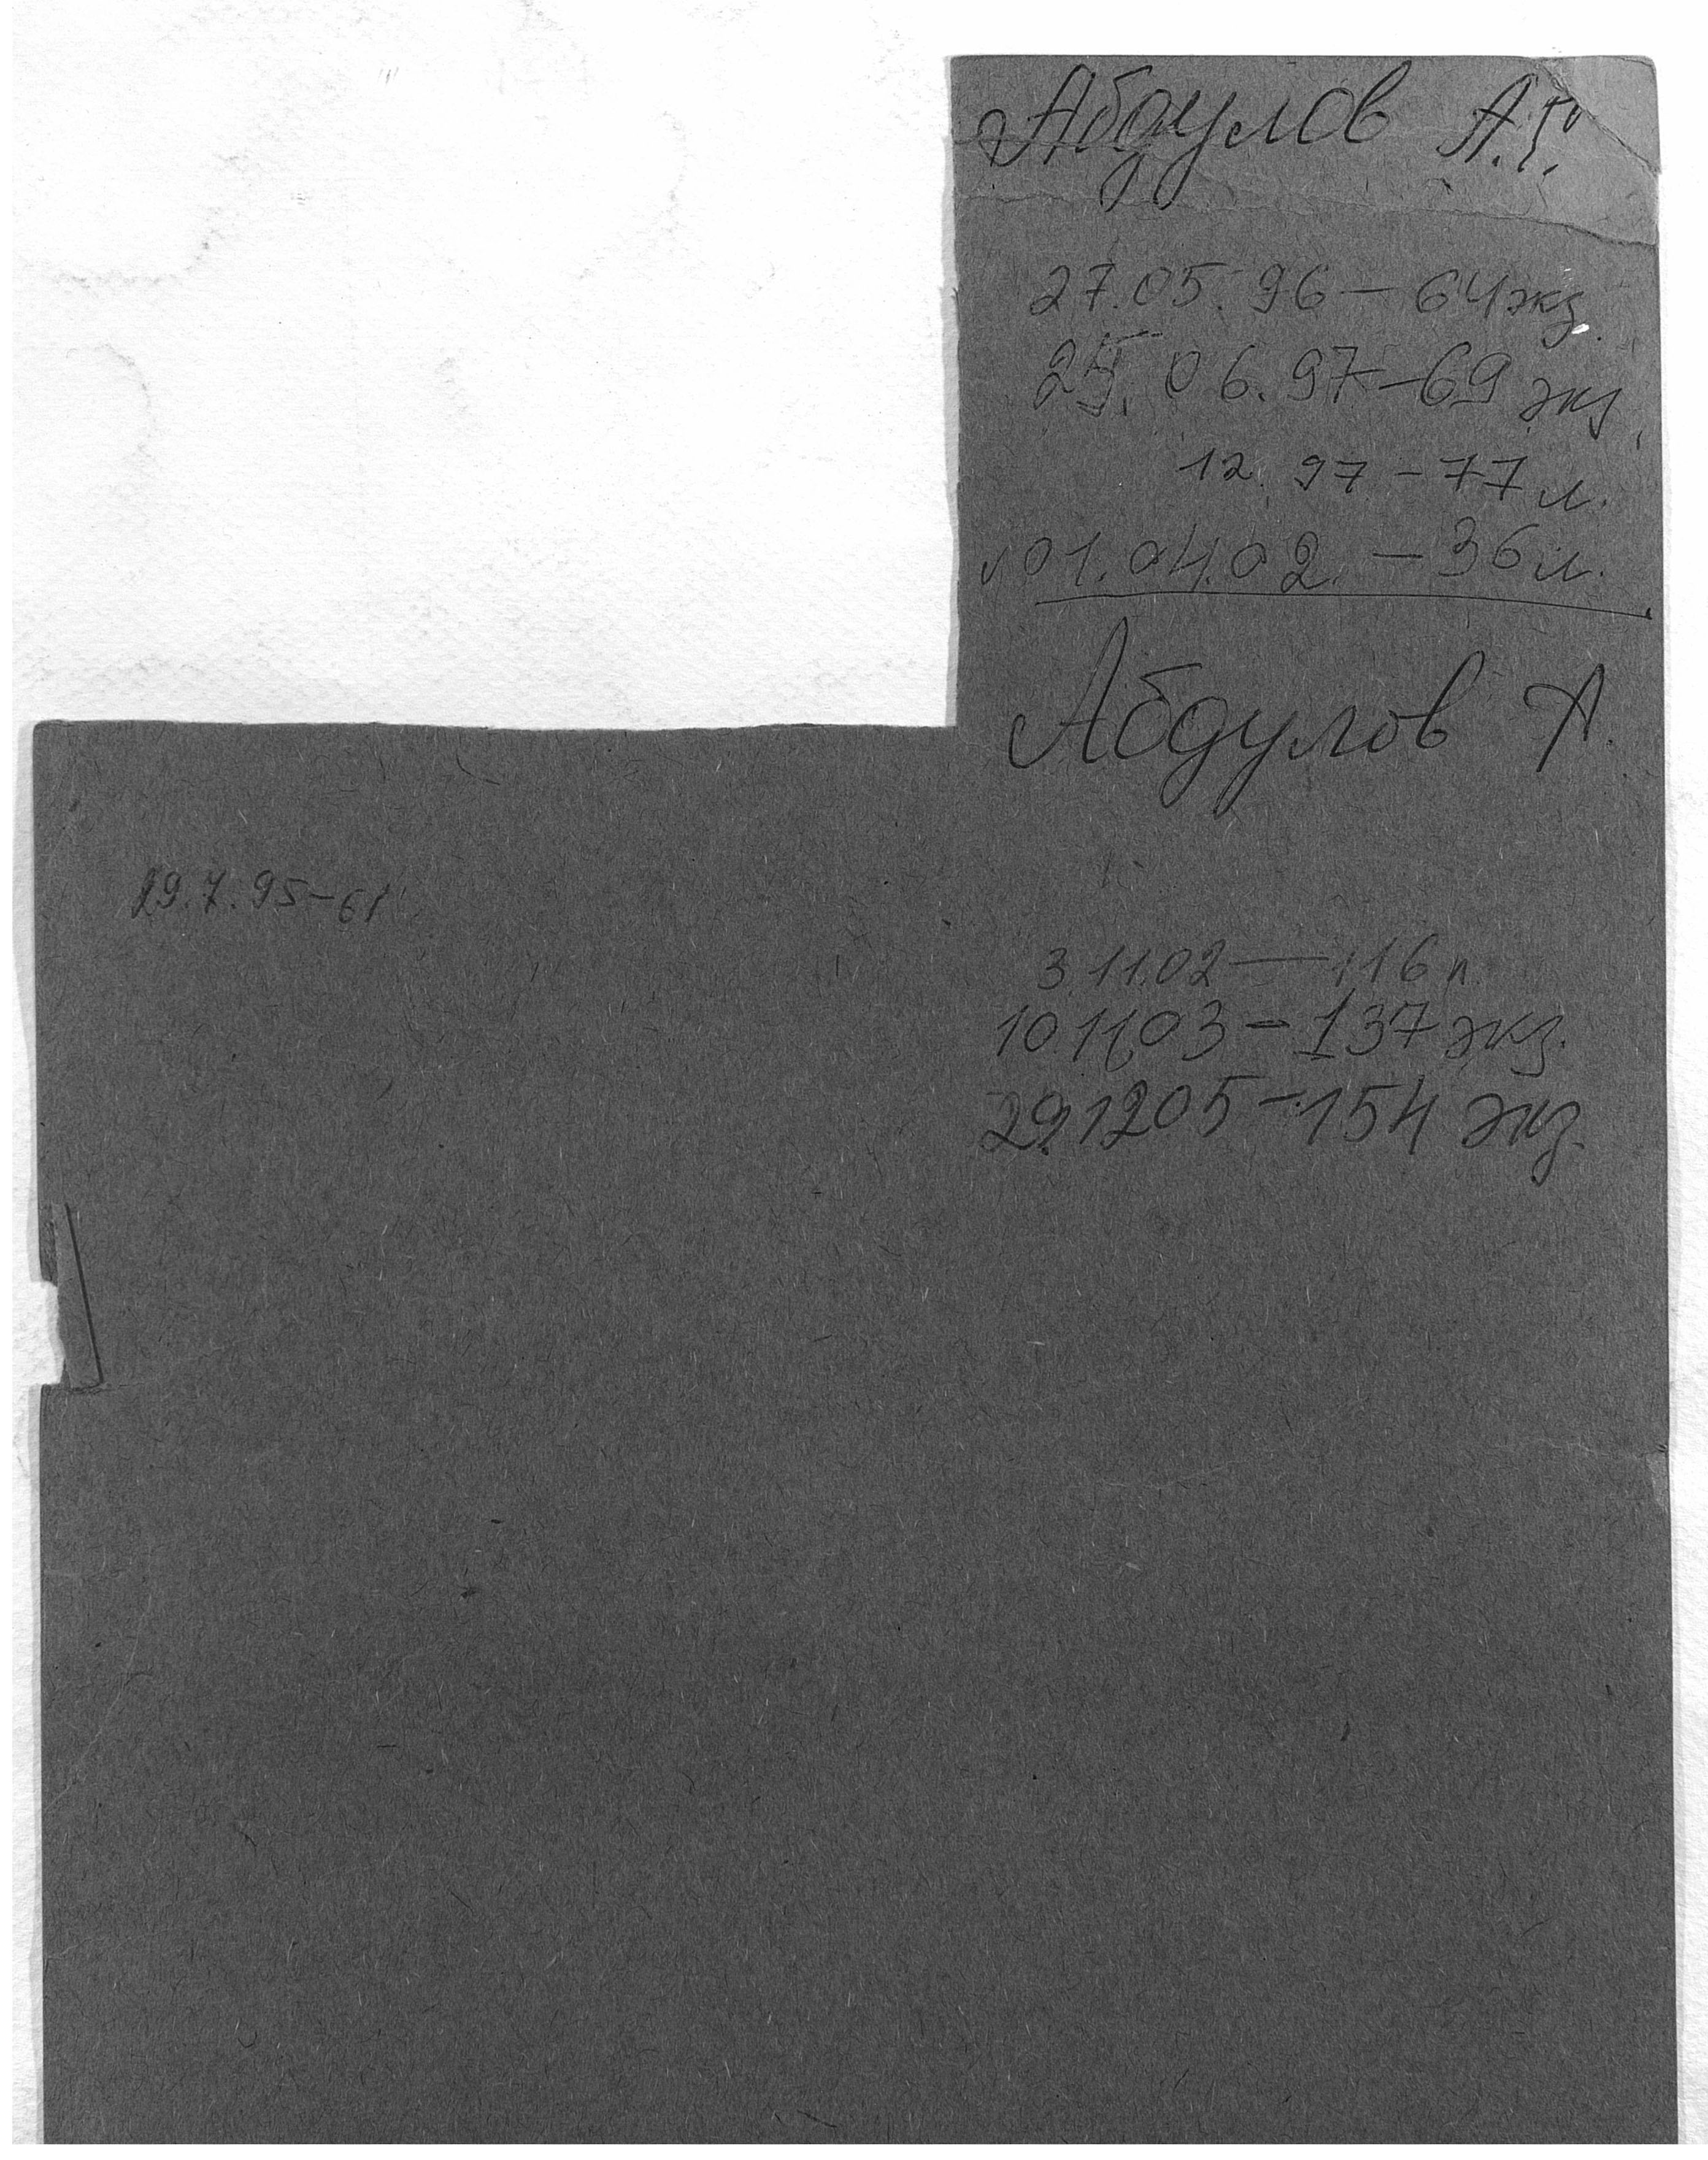 Абдулов А.Г.
27.05.96 – 64 экз.
25.06.97 – 69 экз.
12.97 – 77 л.
01.04.02. – 36 л.
Абдулов А.
29.7.95 – 61
3.11.02 — 116 л.
10.11.03 – 137 экз.
29.12.05 – 154 экз.